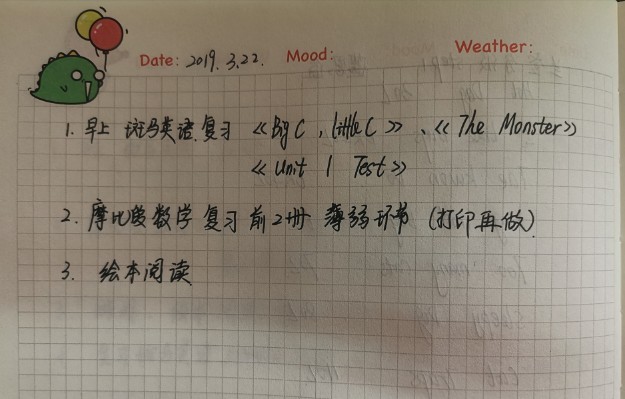 Date: 2019.3.22. Mood: Weather:
1. 早上 斑马英语复习 《Big C, little C》、《The Monster》
《Unit 1 Test》
2. 摩比爱数学复习前2册 薄弱环节 (打印再做)
3. 绘本阅读